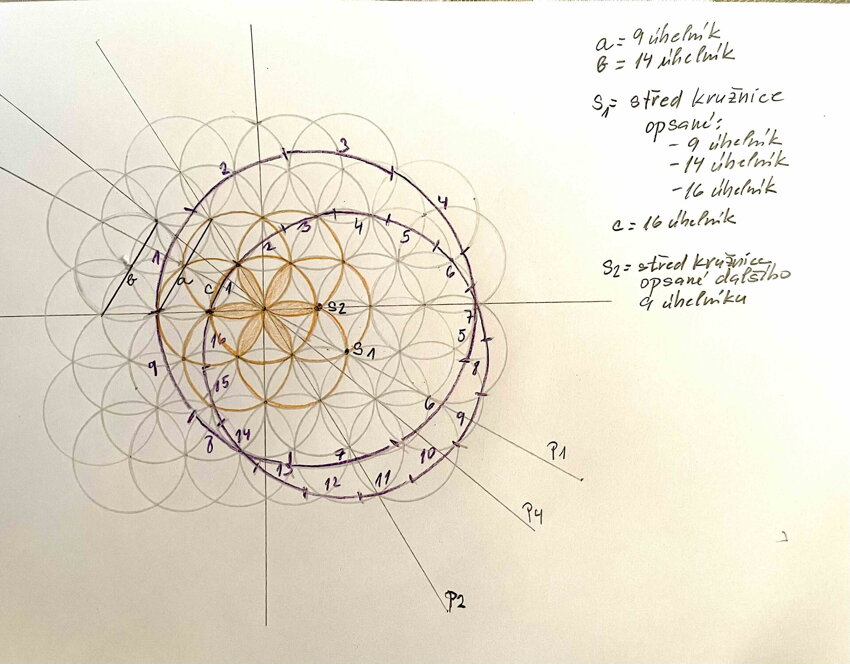 a = 9 úhelník
b = 14 úhelník
S1 = střed kružnice
opsané:
- 9 úhelník
- 14 úhelník
- 16 úhelník
c = 16 úhelník
S2 = střed kružnice
opsané dalšího
9 úhelníku
3
2
4
3
4
5
2
6
1
b
a
c
1
S2
7
5
16
S1
8
9
15
6
9
14
8
7
10
13
12
11
P1
P4
P2